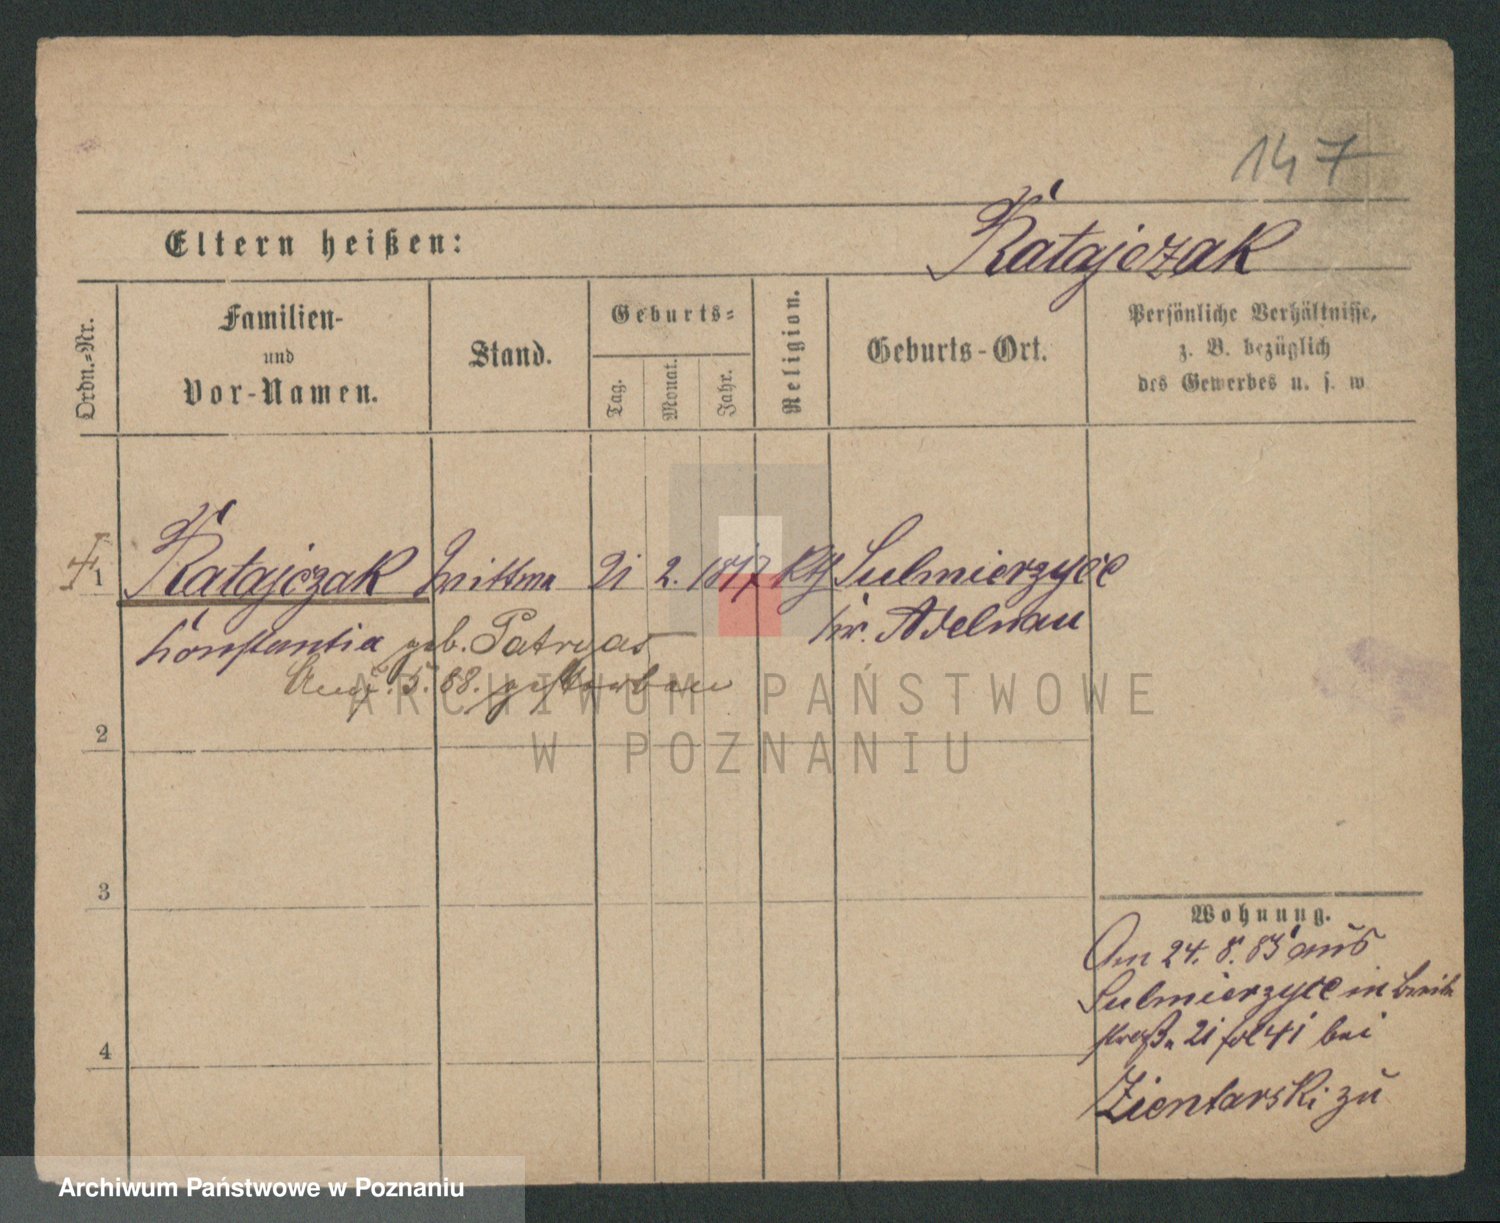 147
Eltern heißen:
Ratajczak
Ordn.-Nr.
Familien-
und
Vor-Namen.
Stand.
Geburts-
Tag.
Monat.
Jahr.
Religion.
Geburts-Ort.
Persönliche Verhältnisse,
z. B. bezüglich
des Gewerbes u. s. w.
1 Ratajczak 21 2. 1817 Kth Sulmierzyce
Konstantia geb. Kr. Adelnau
5. 88. gestorben
ARCHIWUM PAŃSTWOWE
W POZNANIU
2
3
4
Wohnung.
Am 24. 8. 85 aus
Sulmierzyce in Breite
straße 21 bei
Zientarski zu
Archiwum Państwowe w Poznaniu